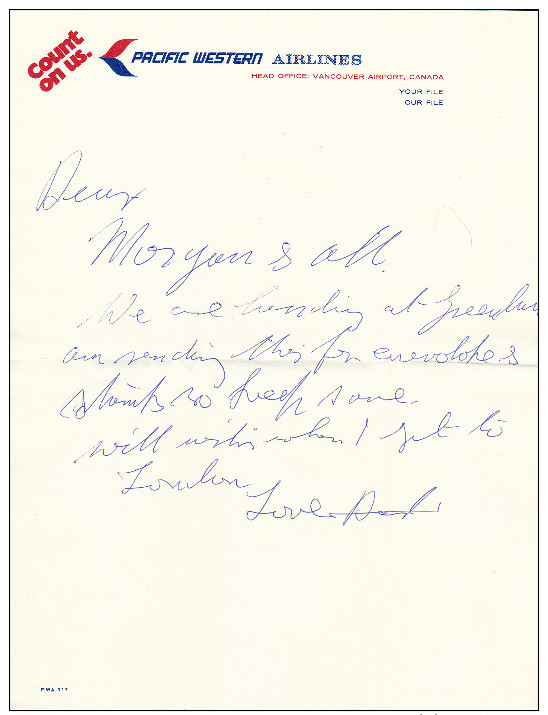 Count on us.
PACIFIC WESTERN AIRLINES
HEAD OFFICE: VANCOUVER AIRPORT, CANADA
YOUR FILE
OUR FILE
Dear
Morgan & all.
We are landing at
am sending this for envolokes &
stamps so keep save
will write when I get to
London
Love Dad
PWA 317